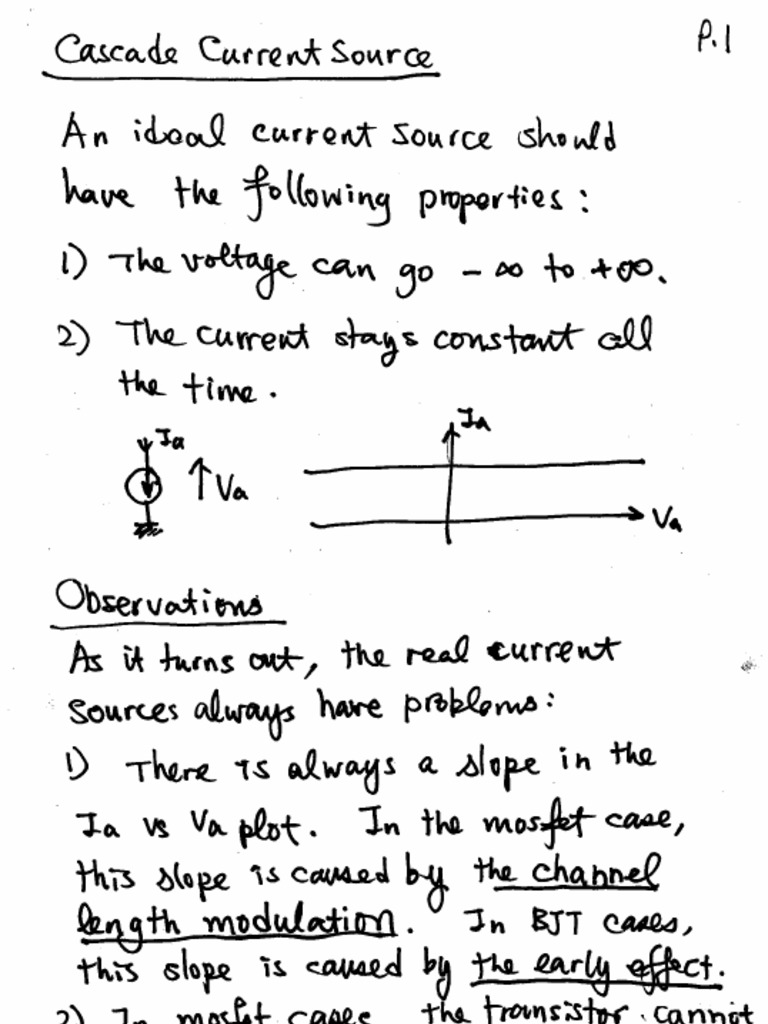 P.1
Cascade Current Source
An ideal current source should
have the following properties:
1) The voltage can go - ∞ to +∞.
2) The current stays constant all
the time.
Ia
Va
Ia
Va
Observations
As it turns out, the real current
sources always have problems:
1) There is always a slope in the
Ia vs Va plot. In the mosfet case,
this slope is caused by the channel
length modulation. In BJT cases,
this slope is caused by the early effect.
2) In mosfet cases, the transistor cannot